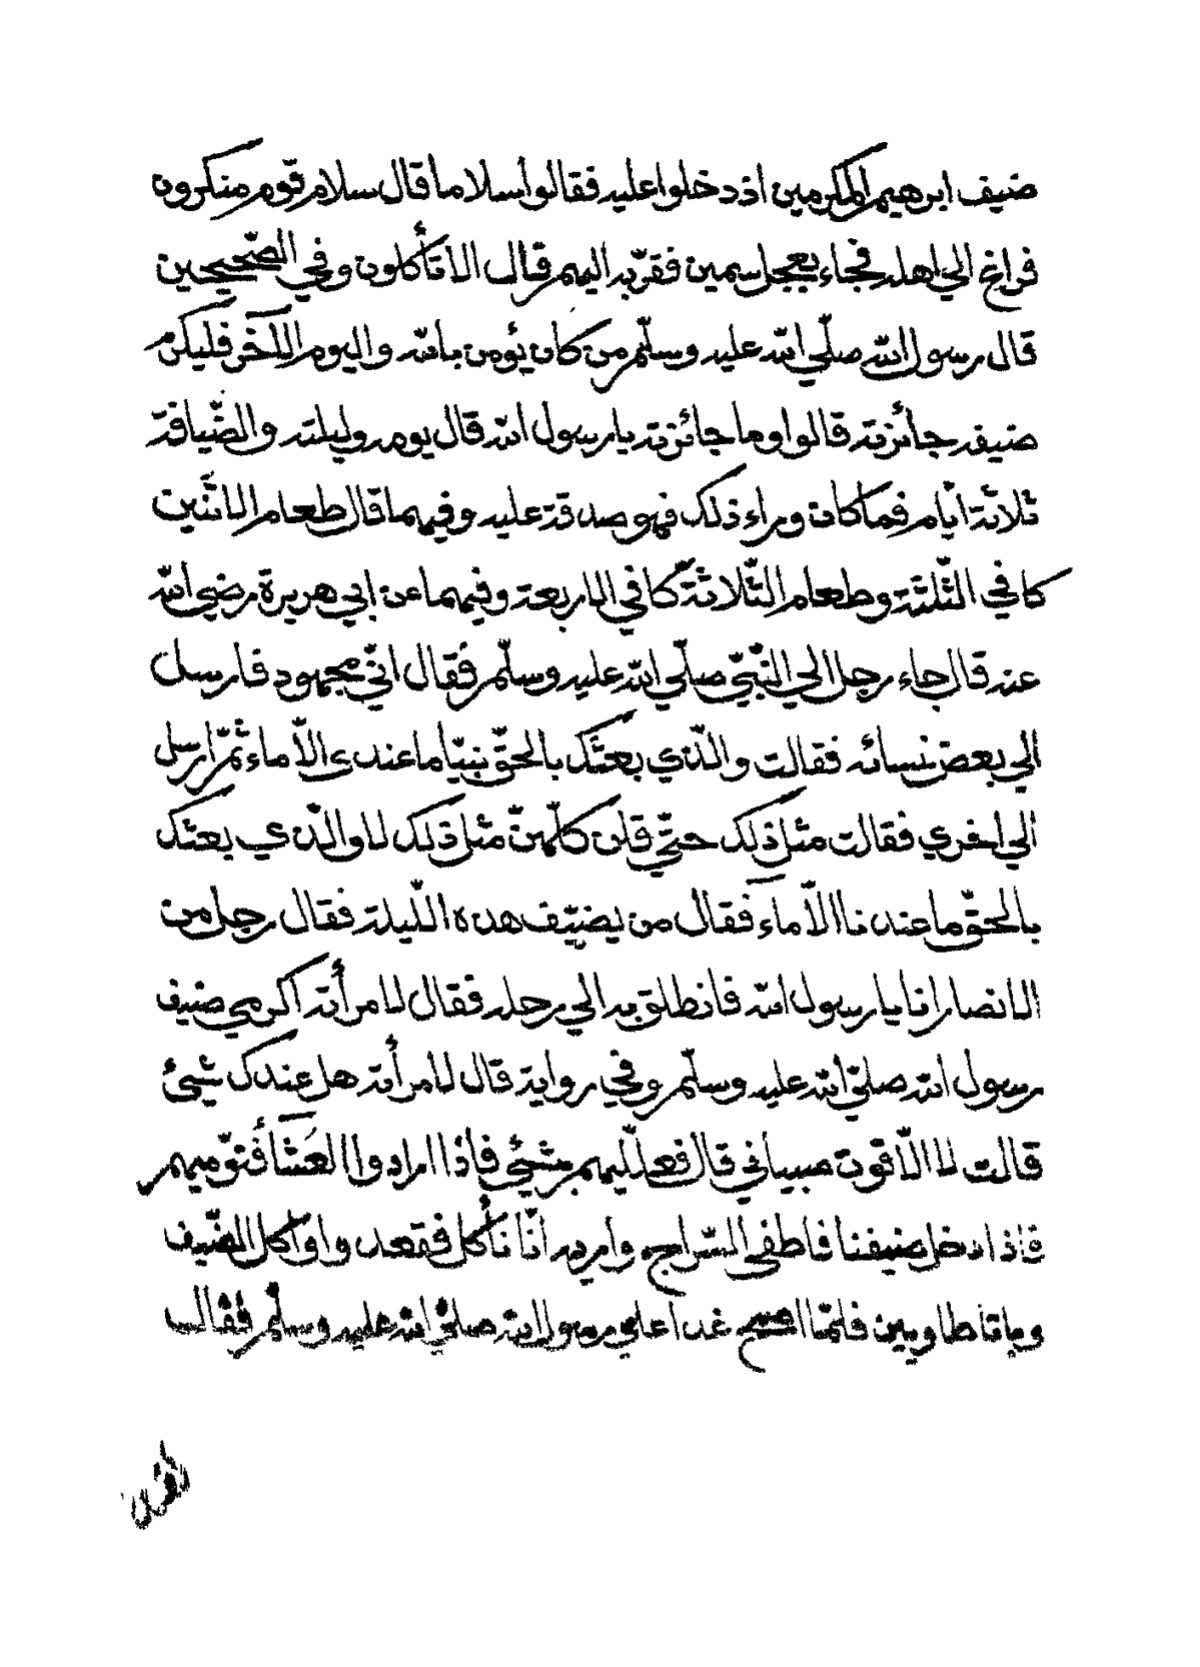 ضيف ابرهيم المكرمين اذ دخلوا عليه فقالوا سلاما قال سلام قوم منكرون
فراغ الي اهله فجاء بعجل سمين فقرّبه اليهم قال الا تأكلون وفي الصّحيحين
قال رسول الله صلّي الله عليه وسلّم من كان يؤمن بالله واليوم الآخر فليكرم
ضيفه جائزته قالوا وما جائزته يا رسول الله قال يومه وليلته والضّيافة
ثلاثة ايّام فما كان وراء ذلك فهو صدقة عليه وفيهما قال طعام الاثنين
كافي الثّلثة وطعام الثّلاثة كافي الاربعة وفيهما عن ابي هريرة رضي الله
عنه قال جاء رجل الي النّبيّ صلّي الله عليه وسلّم فقال انّي مجهود فارسل
الي بعض نسائه فقالت والّذي بعثك بالحقّ نبيّا ما عندى الّا ماء ثمّ ارسل
الي اخري فقالت مثل ذلك حتّي قلن كلّهنّ مثل ذلك لا والّذي بعثك
بالحقّ ما عندنا الّا مآء فقال من يضيّف هذه اللّيلة فقال رجل من
الانصار انا يا رسول الله فانطلق به الي رحله فقال لامرأته اكرمي ضيف
رسول الله صلّي الله عليه وسلّم وفي رواية قال لامرأته هل عندك شيئ
قالت لا الّا قوت صبياني قال فعلّليهم بشيئ فاذا ارادوا العَشآ فنوّميهم
فاذا دخل ضيفنا فاطفي السّراج واريه انّا نأكل فقعدوا واكل الضّيف
وباتا طاويين فلمّا اصبح غدا علي رسول الله صلّي الله عليه وسلّم فقال